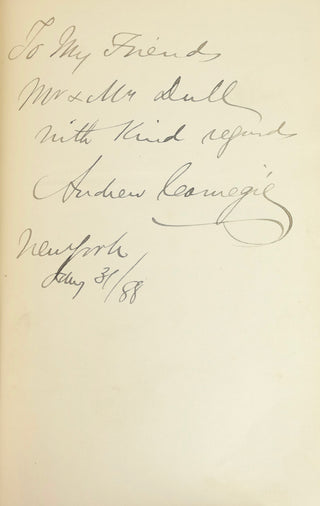 To My Friends
Mr & Mrs Dull
With Kind regards
Andrew Carnegie
New York
31/88